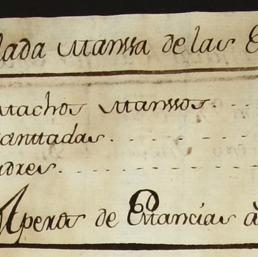 lada Manssa de las E
Machos Manssos
anttadas
adres
Aperos de Estancias a